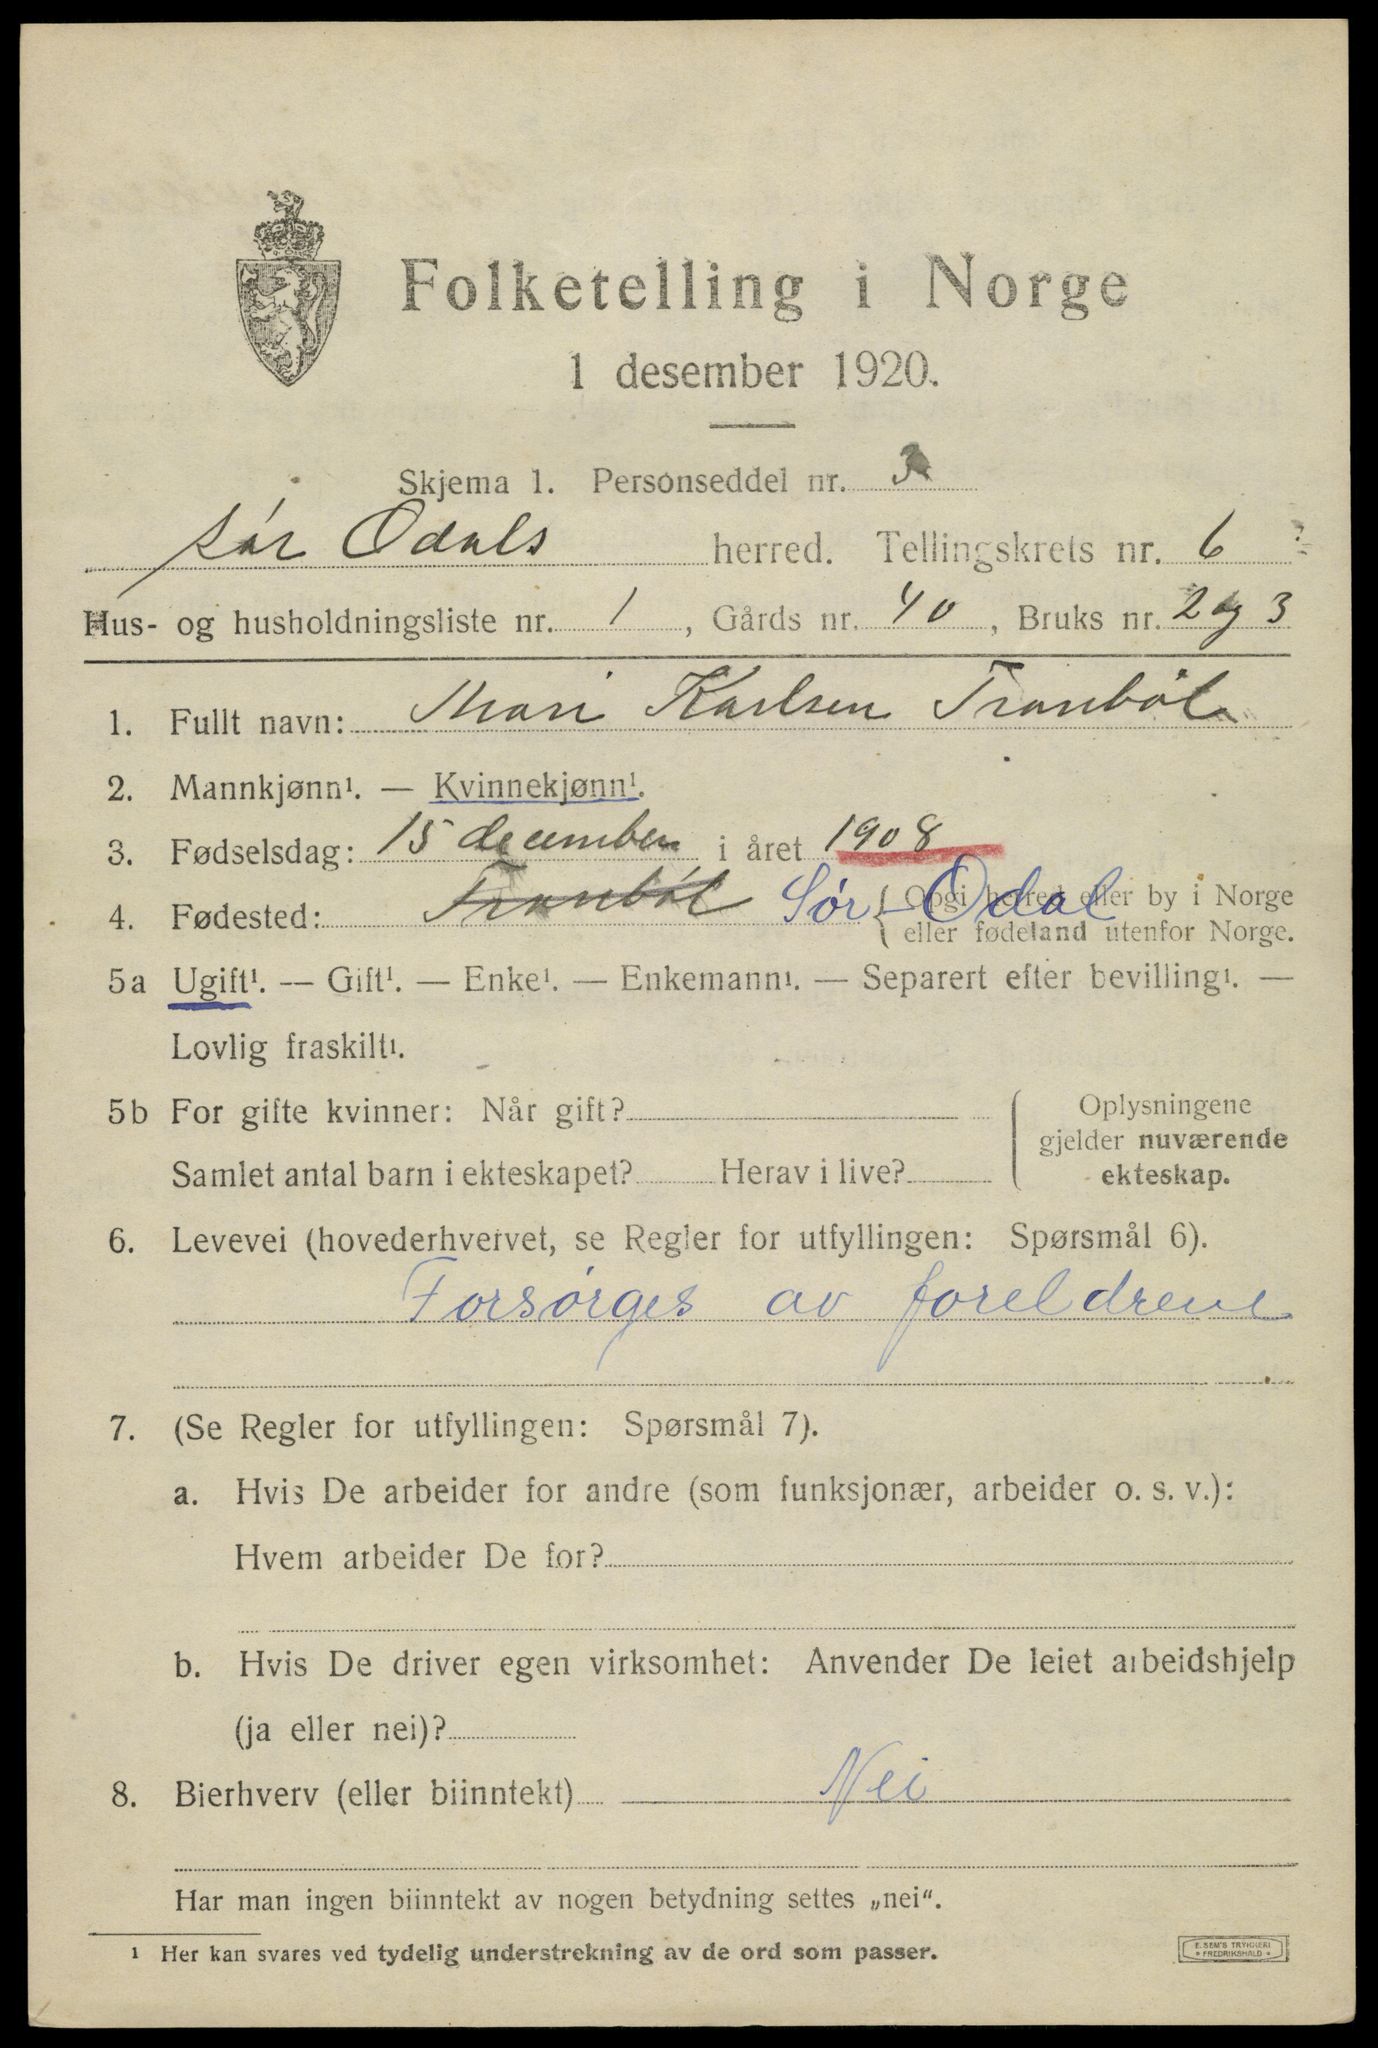 Folketelling i Norge
1 desember 1920.
Skjema 1. Personseddel nr. 3
Sør Odals herred. Tellingskrets nr. 6
Hus- og husholdningsliste nr. 1, Gårds nr. 40, Bruks nr. 2 og 3
1. Fullt navn: Mari Karlsen Tranböl
2. Mannkjønn¹. — Kvinnekjønn¹.
3. Fødselsdag: 15 december i året 1908
4. Fødested: Tranböl Sør-Odal { Opgi herred eller by i Norge
eller fødeland utenfor Norge.
5a Ugift¹. — Gift¹. — Enke¹. — Enkemann¹. — Separert efter bevilling¹. —
Lovlig fraskilt¹.
5b For gifte kvinner: Når gift?
Samlet antal barn i ekteskapet? Herav i live?
Oplysningene
gjelder nuværende
ekteskap.
6. Levevei (hovederhvervet, se Regler for utfyllingen: Spørsmål 6).
Forsørges av foreldrene
7. (Se Regler for utfyllingen: Spørsmål 7).
a. Hvis De arbeider for andre (som funksjonær, arbeider o. s. v.):
Hvem arbeider De for?
b. Hvis De driver egen virksomhet: Anvender De leiet arbeidshjelp
(ja eller nei)?
8. Bierhverv (eller biinntekt) Nei
Har man ingen biinntekt av nogen betydning settes „nei“.
¹ Her kan svares ved tydelig understrekning av de ord som passer.
E. SEM'S TRYKKERI
FREDRIKSHALD